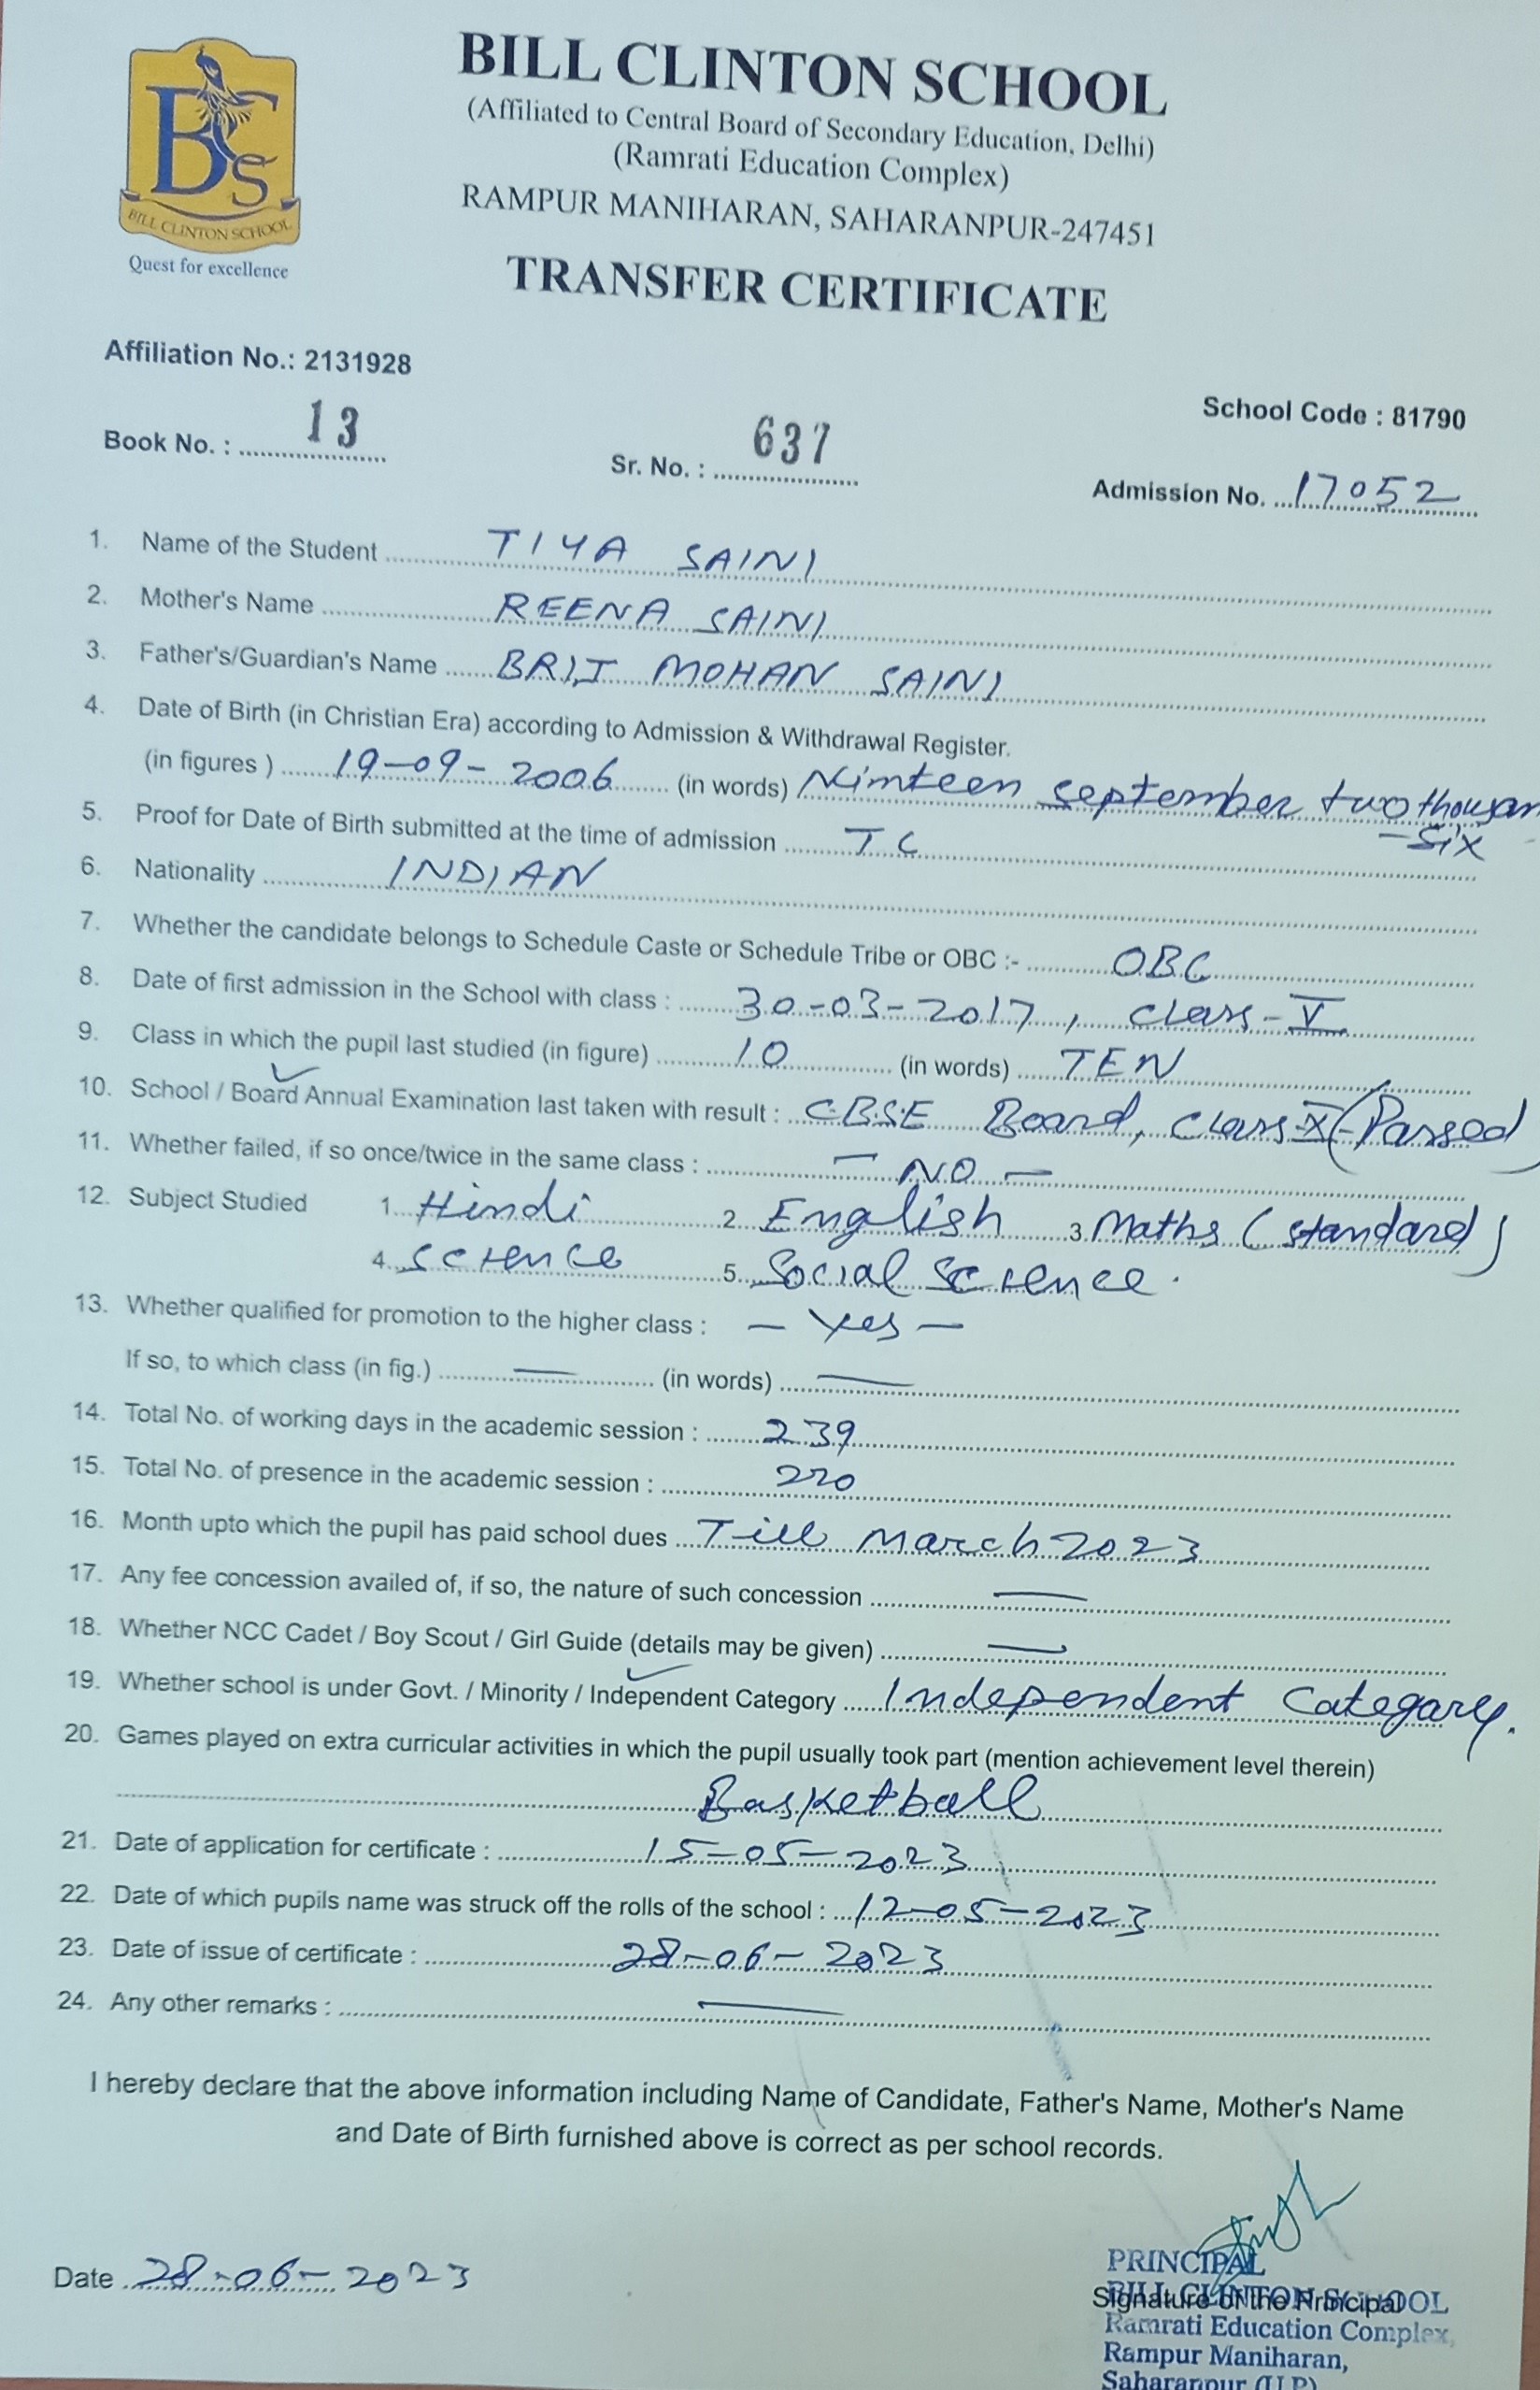 BCS
BILL CLINTON SCHOOL
Quest for excellence
BILL CLINTON SCHOOL
(Affiliated to Central Board of Secondary Education, Delhi)
(Ramrati Education Complex)
RAMPUR MANIHARAN, SAHARANPUR-247451
TRANSFER CERTIFICATE
Affiliation No.: 2131928
School Code : 81790
Book No. : 13 Sr. No. : 637 Admission No. 17052
1. Name of the Student TIYA SAINI
2. Mother's Name REENA SAINI
3. Father's/Guardian's Name BRIJ MOHAN SAINI
4. Date of Birth (in Christian Era) according to Admission & Withdrawal Register.
(in figures ) 19-09-2006 (in words) Ninteen september two thousan
-Six
5. Proof for Date of Birth submitted at the time of admission TC
6. Nationality INDIAN
7. Whether the candidate belongs to Schedule Caste or Schedule Tribe or OBC :- OBC
8. Date of first admission in the School with class : 30-03-2017, class-V
9. Class in which the pupil last studied (in figure) 10 (in words) TEN
10. School / Board Annual Examination last taken with result : C.B.S.E Board, class-X (Passed)
11. Whether failed, if so once/twice in the same class : - NO -
12. Subject Studied 1. Hindi 2. English 3. Maths (standard)
4. Science 5. Social Science.
13. Whether qualified for promotion to the higher class : - Yes -
If so, to which class (in fig.) — (in words) —
14. Total No. of working days in the academic session : 239
15. Total No. of presence in the academic session : 220
16. Month upto which the pupil has paid school dues Till March 2023
17. Any fee concession availed of, if so, the nature of such concession —
18. Whether NCC Cadet / Boy Scout / Girl Guide (details may be given) —
19. Whether school is under Govt. / Minority / Independent Category Independent Category.
20. Games played on extra curricular activities in which the pupil usually took part (mention achievement level therein)
Basketball
21. Date of application for certificate : 15-05-2023
22. Date of which pupils name was struck off the rolls of the school : 12-05-2023
23. Date of issue of certificate : 28-06-2023
24. Any other remarks : —
I hereby declare that the above information including Name of Candidate, Father's Name, Mother's Name
and Date of Birth furnished above is correct as per school records.
Date 28-06-2023
PRINCIPAL
BILL CLINTON SCHOOL
Signature of the Principal
Ramrati Education Complex,
Rampur Maniharan,
Saharanpur (U.P)